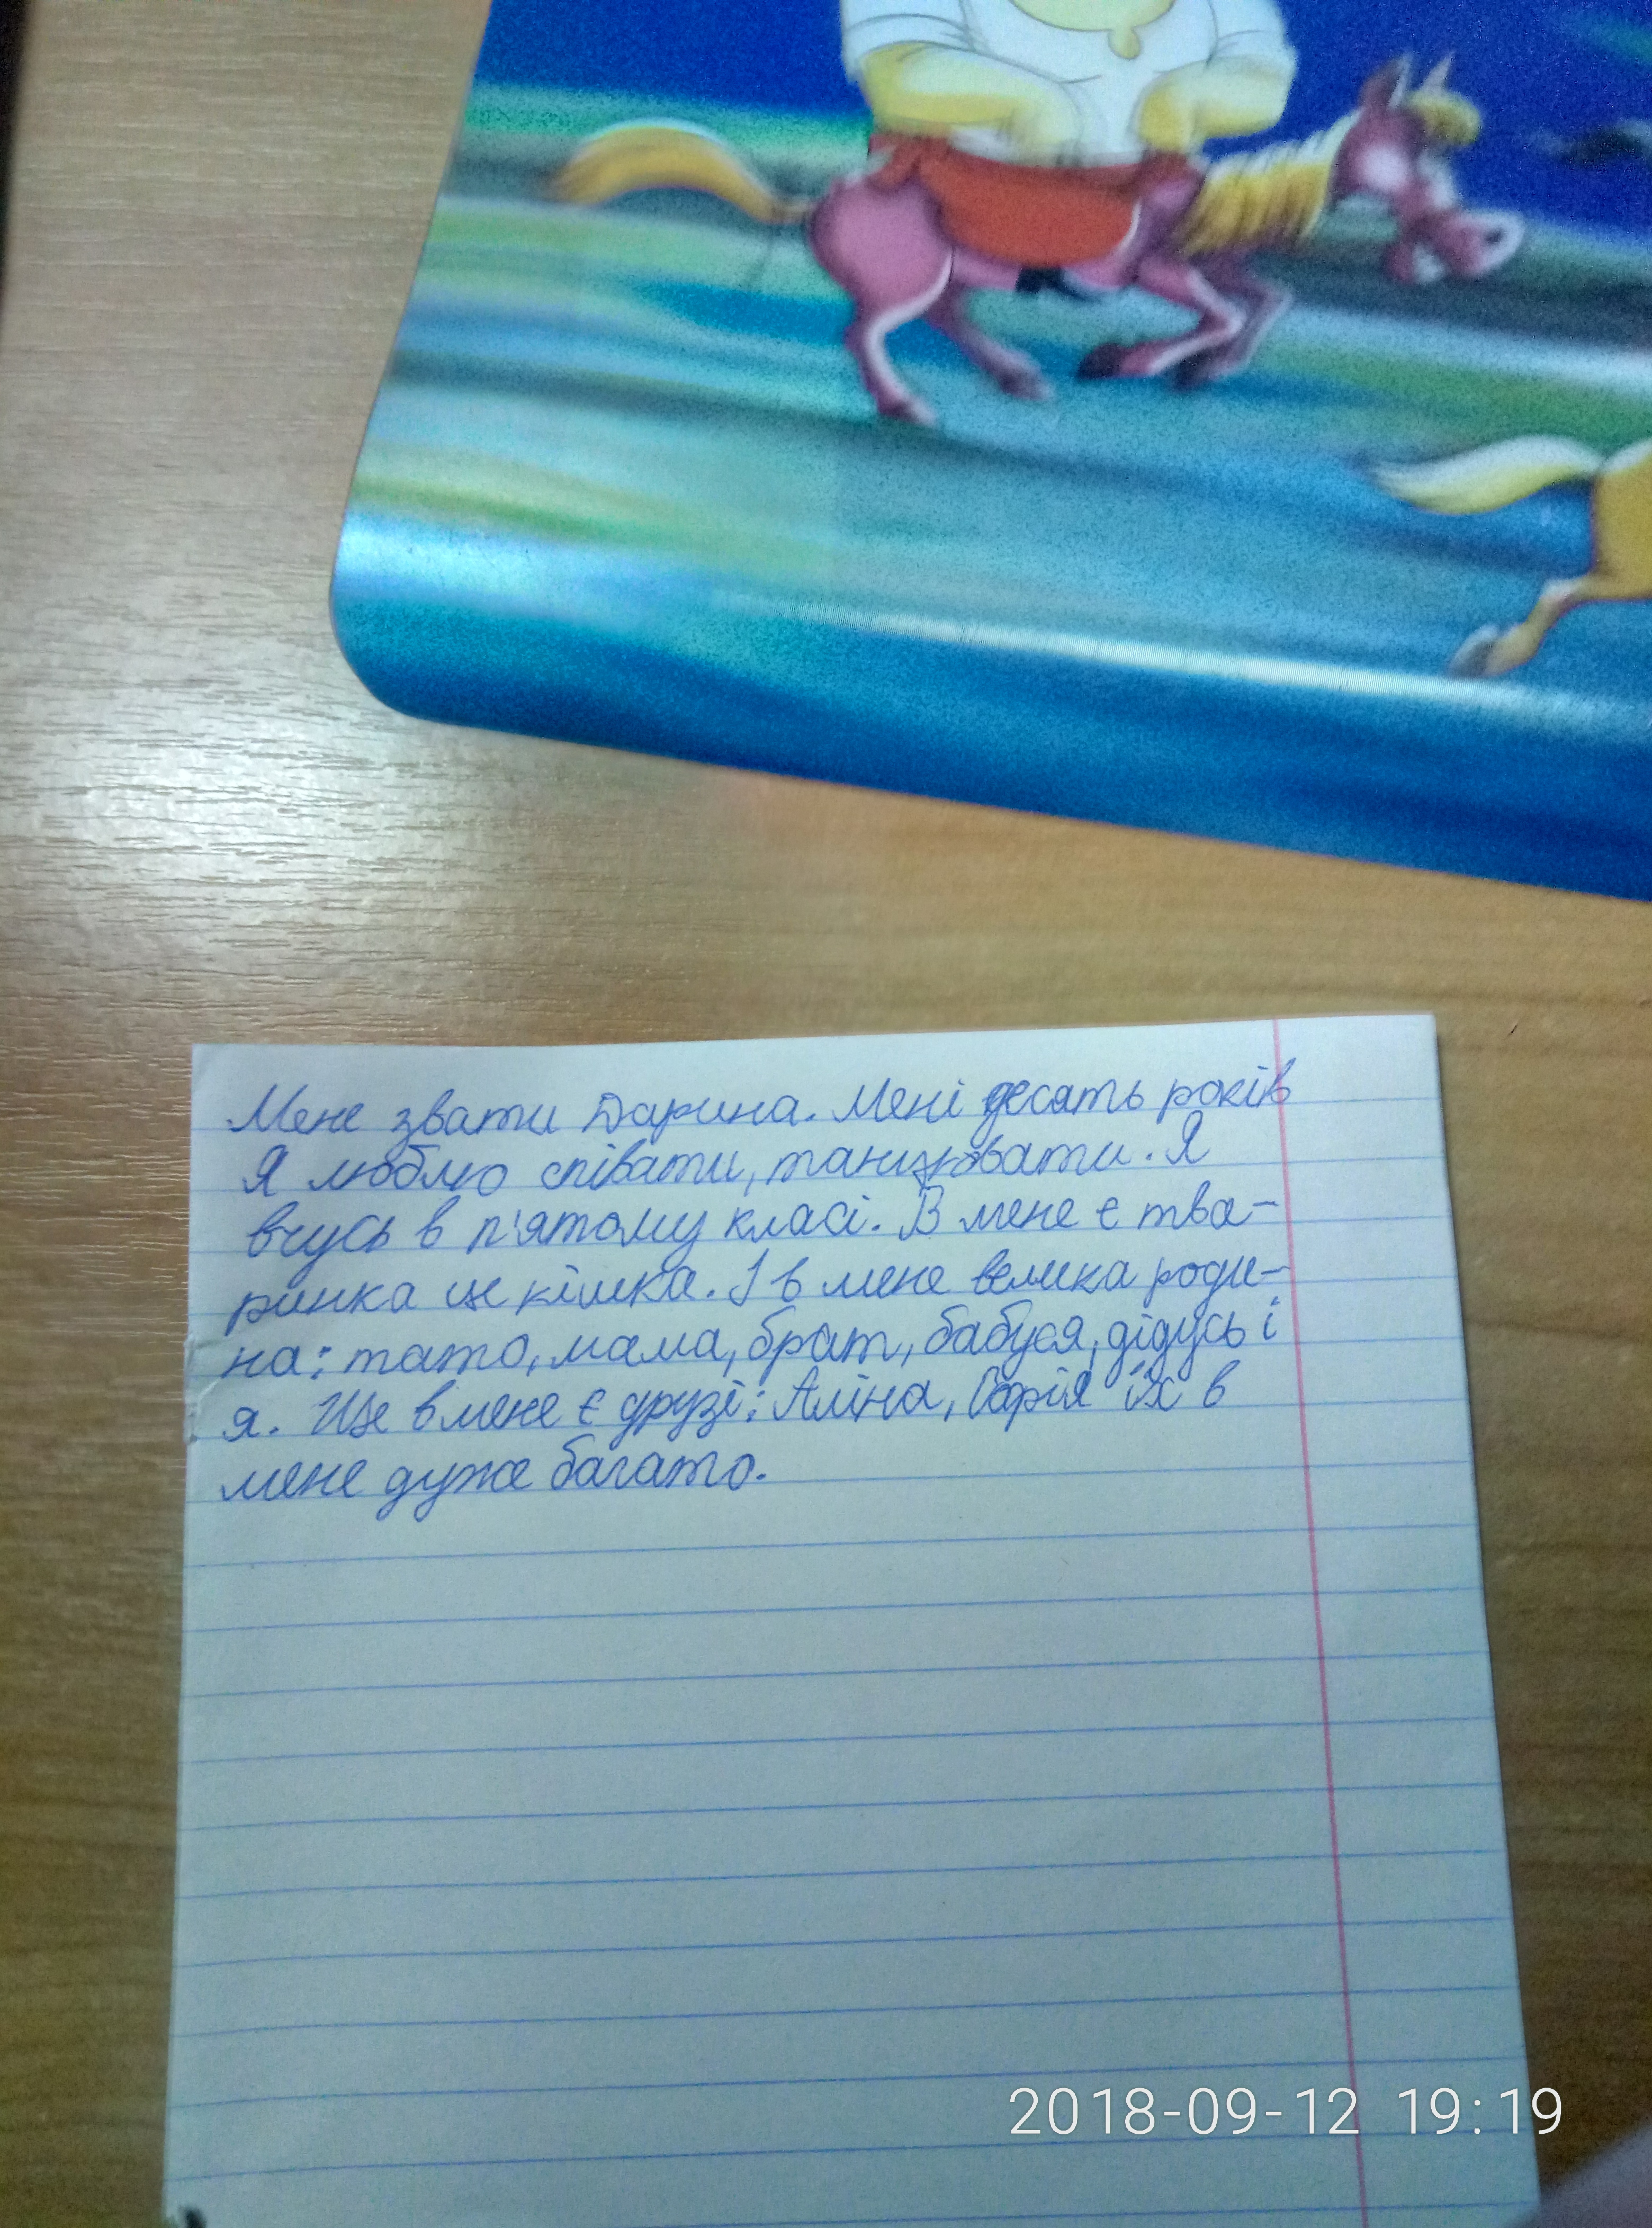 Мене звати Дарина. Мені десять років
Я люблю співати, танцювати. Я
вчусь в п'ятому класі. В мене є тва-
ринка це кішка. І в мене велика роди-
на: тато, мама, брат, бабуся, дідусь і
я. Ще в мене є друзі: Аліна, Софія їх в
мене дуже багато.
2018-09-12 19:19